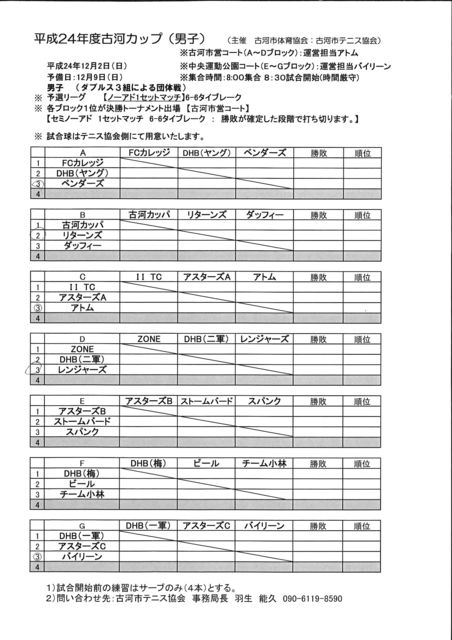 平成24年度古河カップ（男子） （主催　古河市体育協会：古河市テニス協会）
※古河市営コート（A～Dブロック）：運営担当アトム
平成24年12月2日（日） ※中央運動公園コート（E～Gブロック）：運営担当バイリーン
予備日：12月9日（日） ※集合時間：8:00集合 8:30試合開始（時間厳守）
男子　（ダブルス3組による団体戦）
※ 予選リーグ 【ノーアド1セットマッチ】6-6タイブレーク
※ 各ブロック1位が決勝トーナメント出場 【古河市営コート】
【セミノーアド 1セットマッチ 6-6タイブレーク ： 勝敗が確定した段階で打ち切ります。】
※ 試合球はテニス協会側にて用意いたします。
A FCカレッジ DHB（ヤング） ベンダーズ 勝敗 順位
1 FCカレッジ
2 DHB（ヤング）
3 ベンダーズ
4
B 古河カッパ リターンズ ダッフィー 勝敗 順位
1 古河カッパ
2 リターンズ
3 ダッフィー
4
C II TC アスターズA アトム 勝敗 順位
1 II TC
2 アスターズA
3 アトム
4
D ZONE DHB（二軍） レンジャーズ 勝敗 順位
1 ZONE
2 DHB（二軍）
3 レンジャーズ
4
E アスターズB ストームバード スパンク 勝敗 順位
1 アスターズB
2 ストームバード
3 スパンク
4
F DHB（梅） ビール チーム小林 勝敗 順位
1 DHB（梅）
2 ビール
3 チーム小林
4
G DHB（一軍） アスターズC バイリーン 勝敗 順位
1 DHB（一軍）
2 アスターズC
3 バイリーン
4
1）試合開始前の練習はサーブのみ（4本）とする。
2）問い合わせ先：古河市テニス協会　事務局長　羽生　能久　090-6119-8590